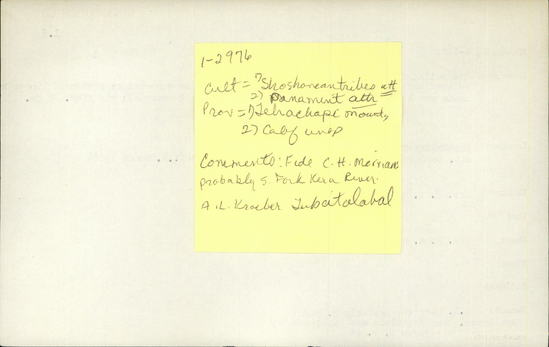 1-2976
Cult = 1) Shoshonean tribes att
2) Panamint attr
Prov = 1) Tehachapi mounds
2) Calif unsp
Comments: Fide C. H. Merriam
probably S. Fork Kern River.
A. L. Kroeber Tubatulabal